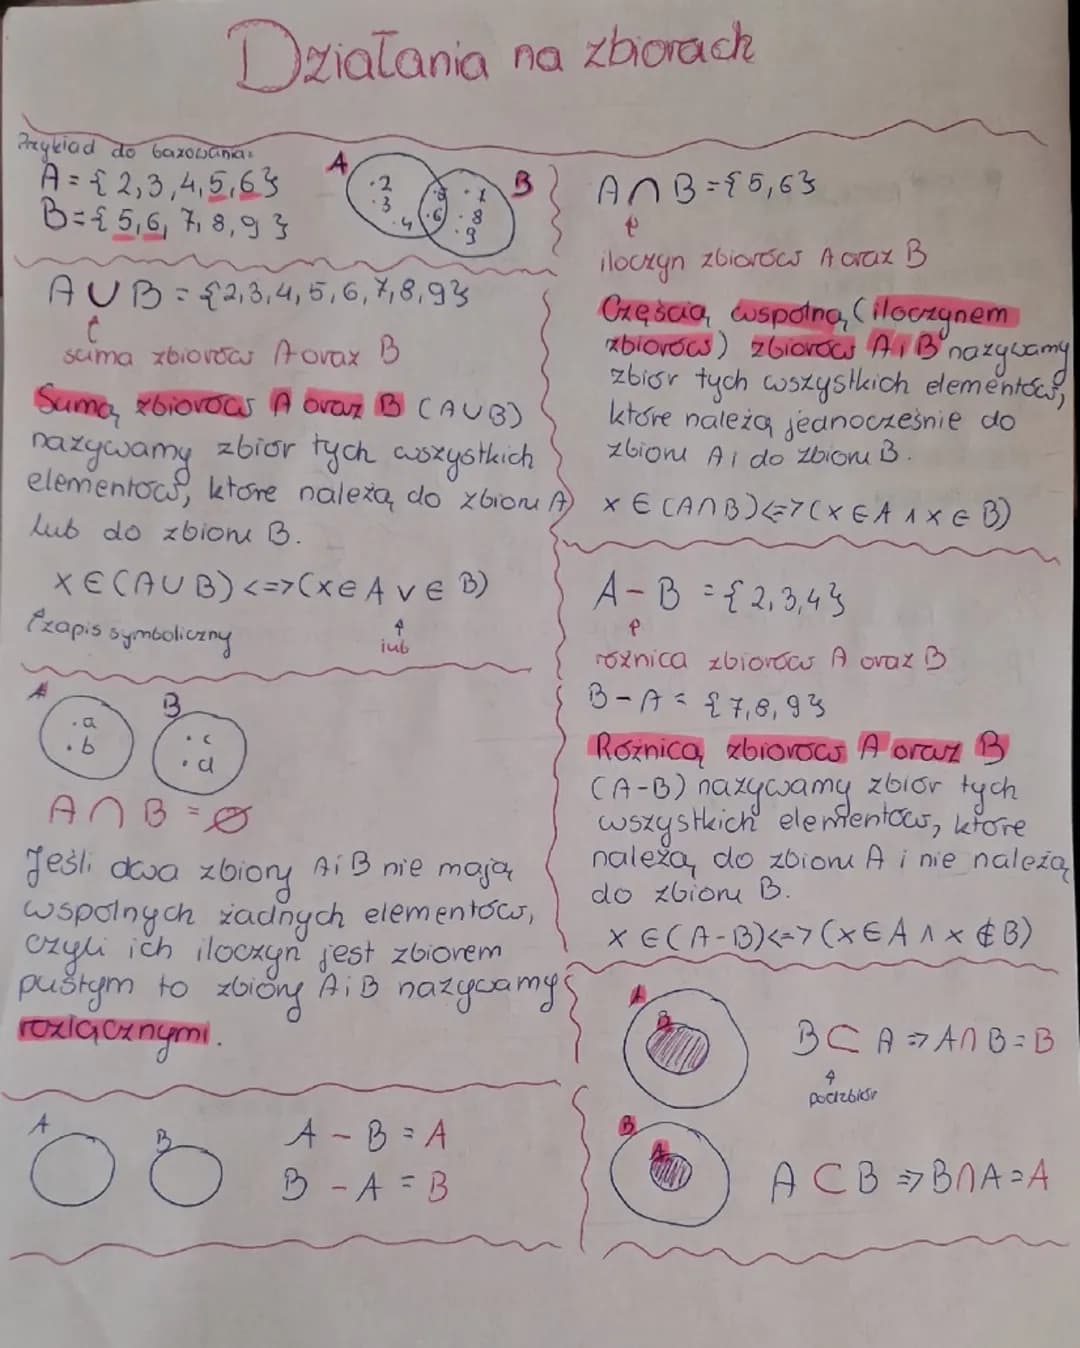 Działania na zbiorach
Przykład do bazowania:
A = { 2, 3, 4, 5, 6 }
B = { 5, 6, 7, 8, 9 }
A
B
.2
.3
.4
.5
.6
.7
.8
.9
A ∪ B = { 2, 3, 4, 5, 6, 7, 8, 9 }
suma zbiorów A oraz B
Sumą zbiorów A oraz B (A∪B)
nazywamy zbiór tych wszystkich
elementów, które należą do zbioru A
lub do zbioru B.
x ∈ (A∪B) <=> (x ∈ A ∨ ∈ B)
zapis symboliczny
lub
A
B
.a
.b
.c
.d
A ∩ B = ∅
Jeśli dwa zbiory A i B nie mają
wspolnych żadnych elementów,
czyli ich iloczyn jest zbiorem
pustym to zbiory A i B nazywamy
rozłącznymi.
A
B
A - B = A
B - A = B
A ∩ B = { 5, 6 }
iloczyn zbiorów A oraz B
Częścią wspólną (iloczynem
zbiorów) zbiorów A i B nazywamy
zbiór tych wszystkich elementów,
które należą jednocześnie do
zbioru A i do zbioru B.
x ∈ (A∩B) <=> (x ∈ A ∧ x ∈ B)
A - B = { 2, 3, 4 }
różnica zbiorów A oraz B
B - A = { 7, 8, 9 }
Różnicą zbiorów A oraz B
(A-B) nazywamy zbiór tych
wszystkich elementów, które
należą do zbioru A i nie należą
do zbioru B.
x ∈ (A-B) <=> (x ∈ A ∧ x ∉ B)
A
B
B ⊂ A => A∩B = B
podzbiór
B
A
A ⊂ B => B∩A = A